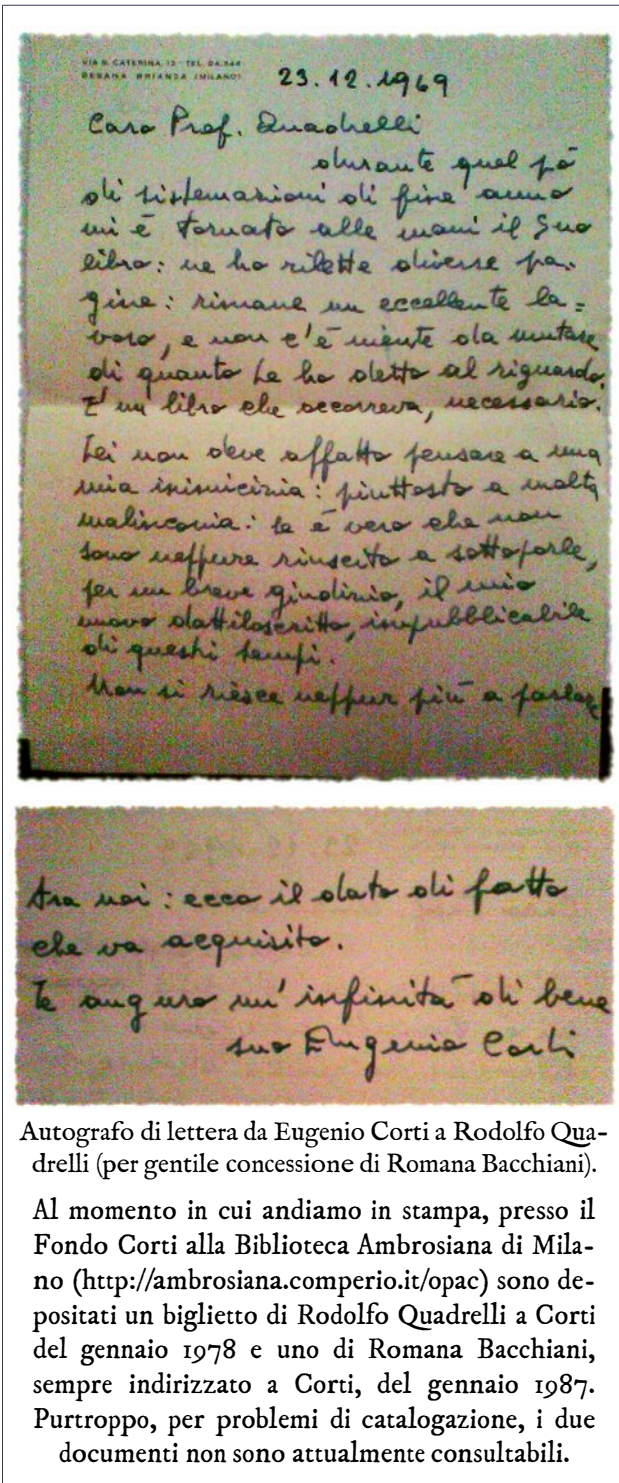 VIA S. CATERINA, 12 - TEL. 94.344
BESANA BRIANZA (MILANO)
23.12.1969
Caro Prof. Quadrelli
durante quel pò
di sistemazioni di fine anno
mi è tornato alle mani il Suo
libro: ne ho rilette diverse pa-
gine: rimane un eccellente la=
voro, e non c'è niente da mutare
di quanto Le ho detto al riguardo.
E' un libro che occorreva, necessario.
Lei non deve affatto pensare a una
mia inimicizia: piuttosto a molta
malinconia: se è vero che non
sono neppure riuscito a sottoporle,
per un breve giudizio, il mio
nuovo dattiloscritto, impubblicabile
di questi tempi.
Non si riesce neppur più a parlare
tra noi: ecco il dato di fatto
che va acquisito.
Le auguro un' infinità di bene
suo Eugenio Corti
Autografo di lettera da Eugenio Corti a Rodolfo Qua-
drelli (per gentile concessione di Romana Bacchiani).
Al momento in cui andiamo in stampa, presso il
Fondo Corti alla Biblioteca Ambrosiana di Mila-
no (http://ambrosiana.comperio.it/opac) sono de-
positati un biglietto di Rodolfo Quadrelli a Corti
del gennaio 1978 e uno di Romana Bacchiani,
sempre indirizzato a Corti, del gennaio 1987.
Purtroppo, per problemi di catalogazione, i due
documenti non sono attualmente consultabili.